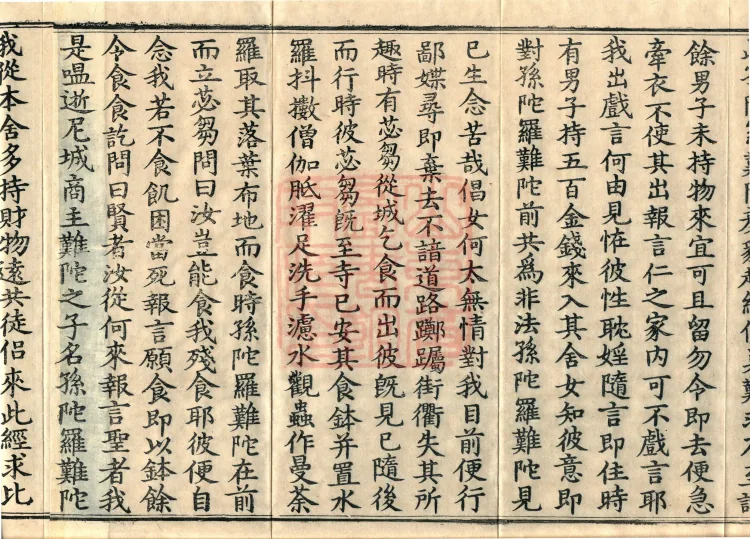 餘男子未持物來宜可且留勿令即去便急
牽衣不使其出報言仁之家內可不戲言耶
我出戲言何由見恠彼性耽婬隨言即住時
有男子持五百金錢來入其舍女知彼意即
對孫陀羅難陀前共爲非法孫陀羅難陀見
已生念苦哉倡女何太無情對我目前便行
鄙媟尋即棄去不諳道路躑躅街衢失其所
趣時有苾芻從城乞食而出彼旣見已隨後
而行時彼苾芻旣至寺已安其食鉢并置水
羅抖擻僧伽胝濯足洗手濾水觀蟲作曼荼
羅取其落葉布地而食時孫陀羅難陀在前
而立苾芻問曰汝豈能食我殘食耶彼便自
念我若不食飢困當死報言願食即以鉢餘
令食食訖問曰賢者汝從何來報言聖者我
是嗢逝尼城商主難陀之子名孫陀羅難陀
我從本舍多持財物遠共徒侶來此經求比